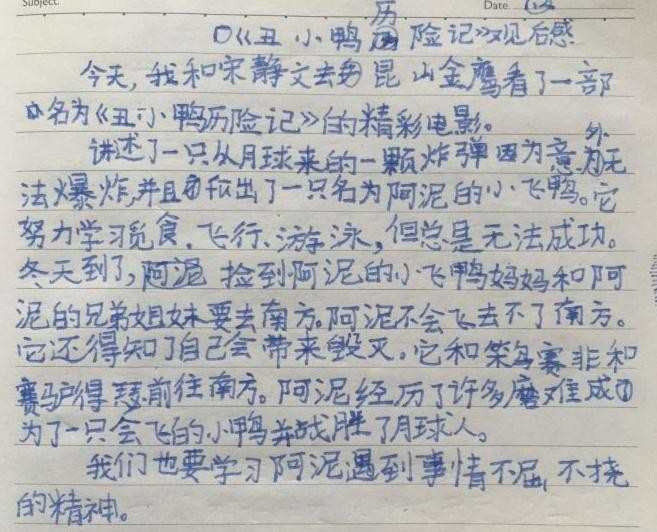 Subject. Date.
《丑小鸭历险记》观后感
今天,我和宋静文去昆山金鹰看了一部
名为《丑小鸭历险记》的精彩电影。
讲述了一只从月球来的一颗炸弹因为意外无
法爆炸,并且孵出了一只名为阿泥的小飞鸭。它
努力学习觅食、飞行、游泳,但总是无法成功。
冬天到了,阿泥捡到阿泥的小飞鸭妈妈和阿
泥的兄弟姐妹要去南方。阿泥不会飞去不了南方。
它还得知了自己会带来毁灭。它和笨鸟赛非和
赛驴得瑟前往南方。阿泥经历了许多磨难成
为了一只会飞的小鸭并战胜了月球人。
我们也要学习阿泥遇到事情不屈不挠
的精神。